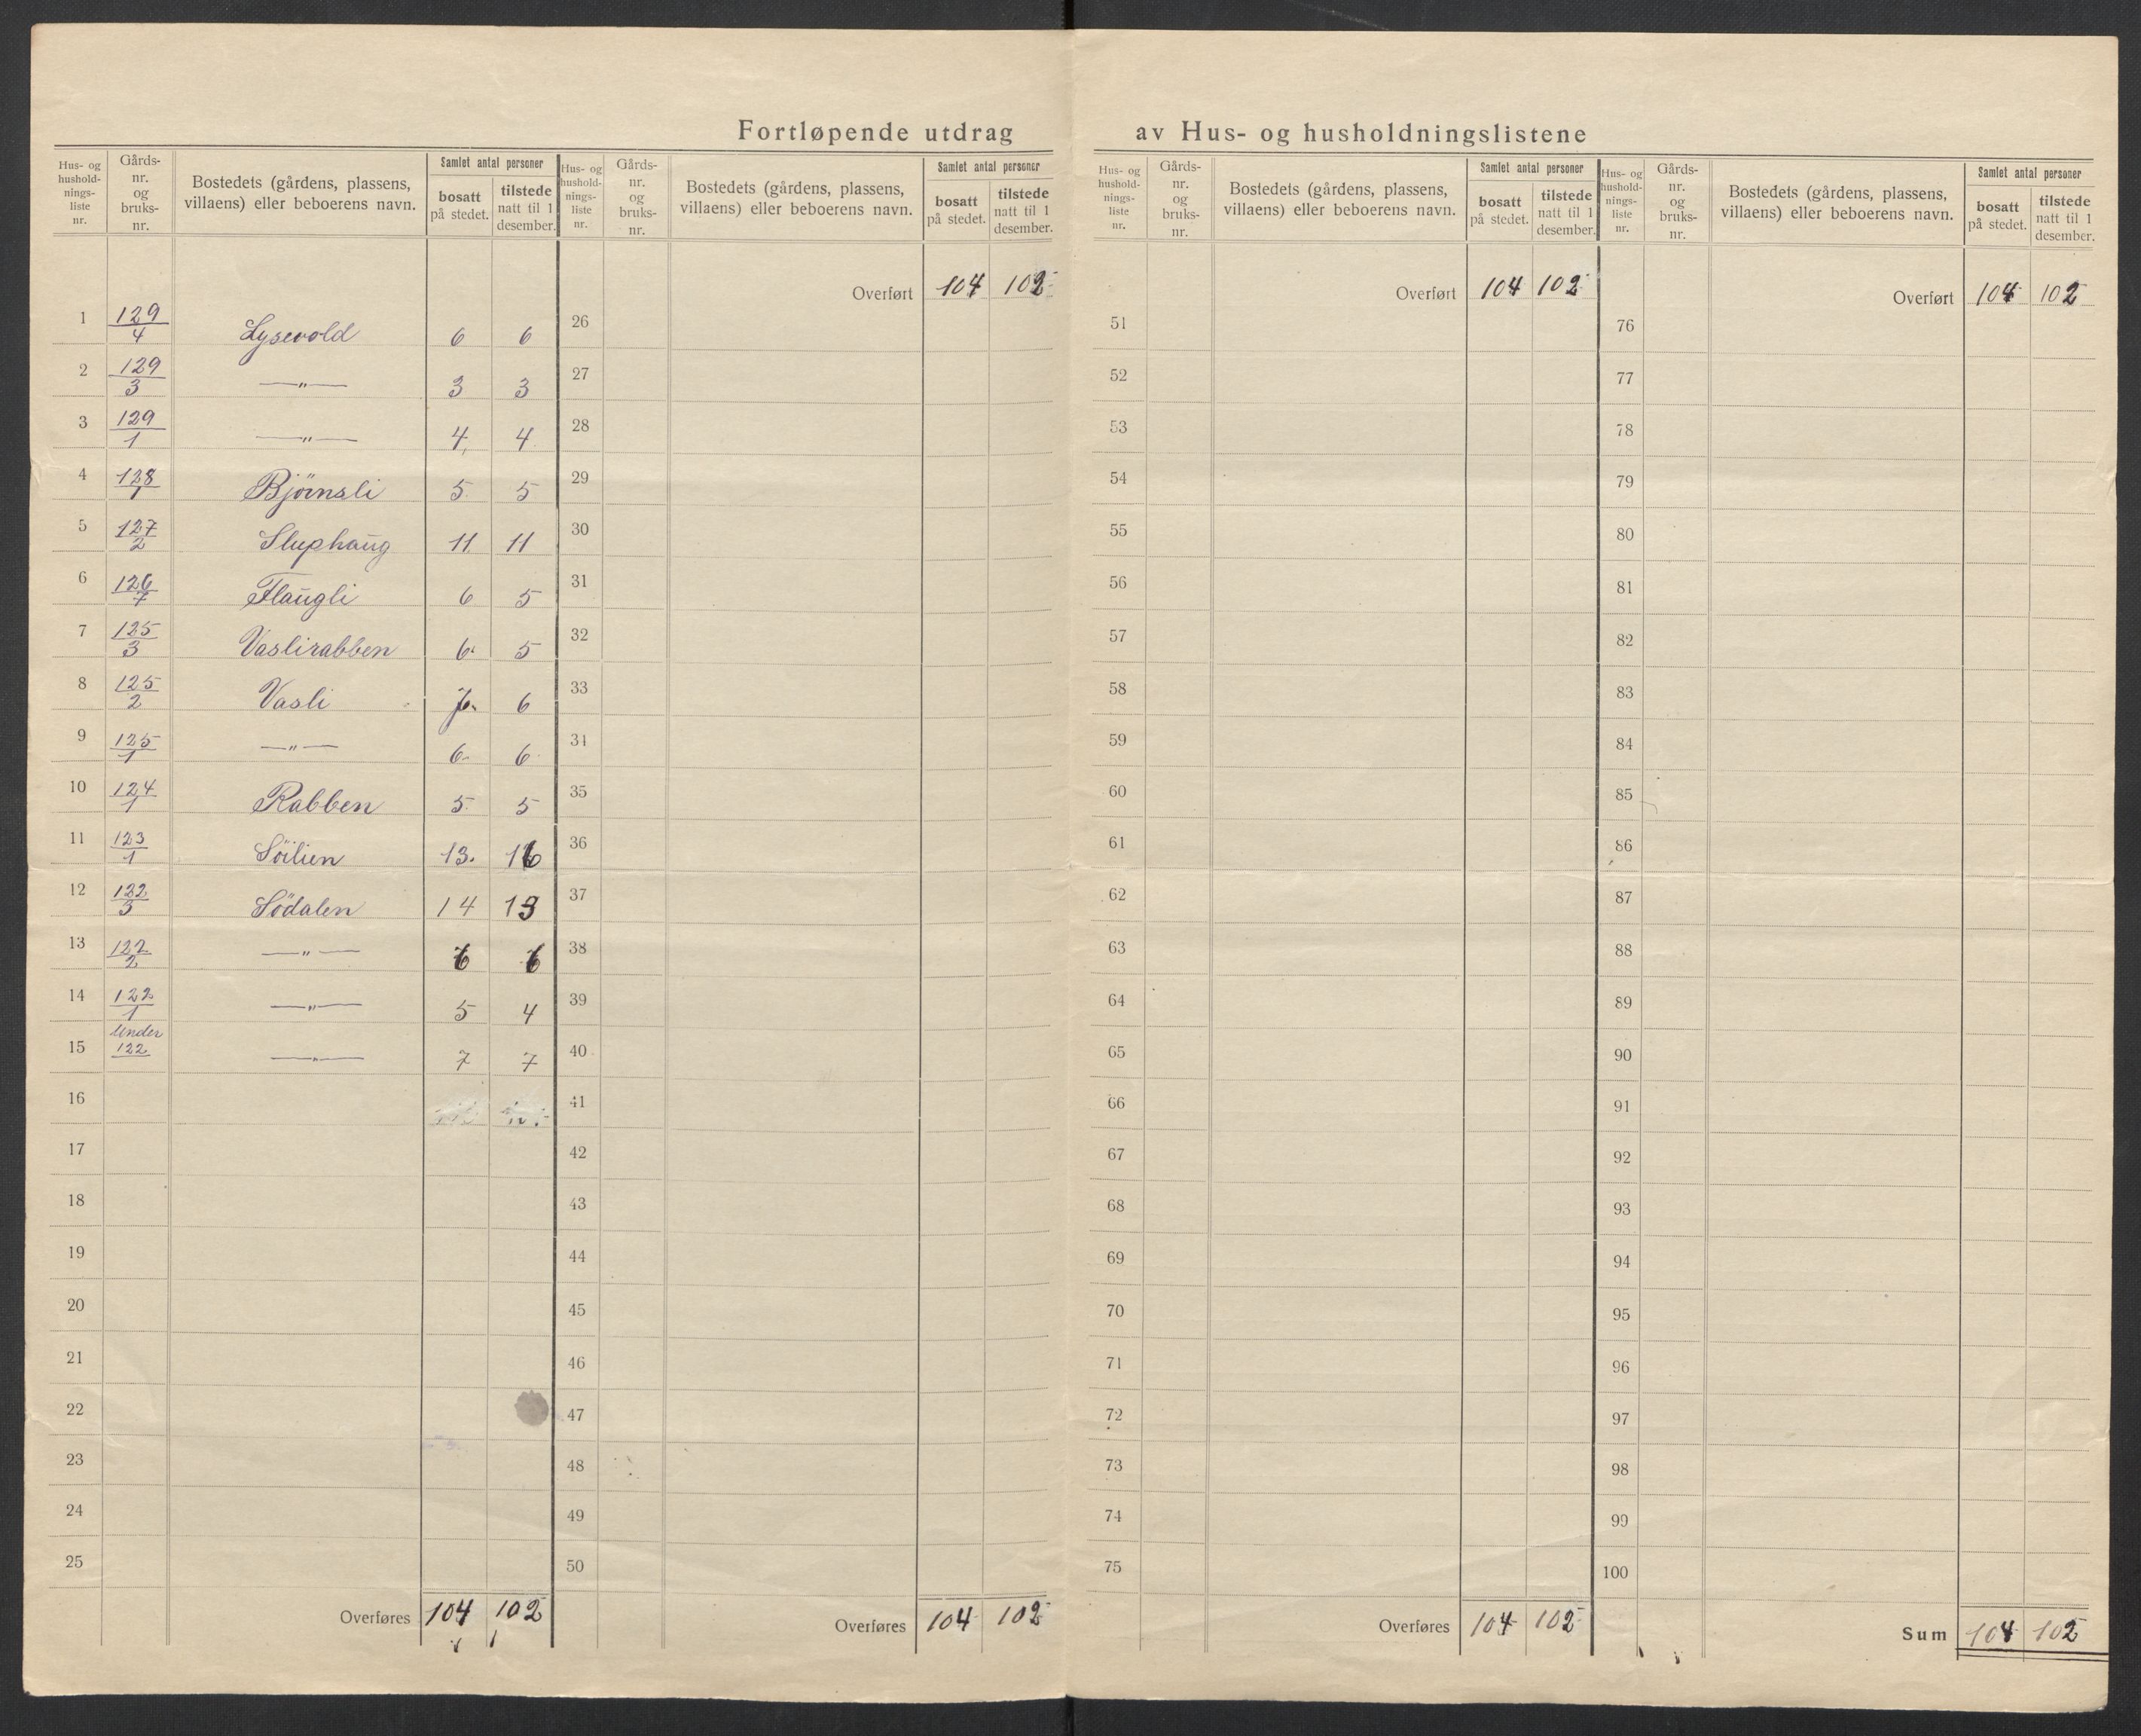 Fortløpende utdrag av Hus- og husholdningslistene
Hus- og hushold-nings-liste nr. Gårds-nr. og bruks-nr. Bostedets (gårdens, plassens, villaens) eller beboerens navn. Samlet antal personer bosatt på stedet. tilstede natt til 1 desember.
1 129/4 Lysevold 6 6
2 129/3 —"— 3 3
3 129/1 —"— 4 4
4 128/1 Bjørnsli 5 5
5 127/2 Sluphaug 11 11
6 126/7 Flaugli 6 5
7 125/3 Vaslirabben 6 5
8 125/2 Vasli 6
9 125/1 —"— 6 6
10 124/1 Rabben 5 5
11 123/1 Söilien 13 16
12 122/3 Södalen 14 13
13 122/2 —"— 6 6
14 122/1 —"— 5 4
15 Under 122 —"— 7 7
16
17
18
19
20
21
22
23
24
25
Overføres 104 102
Hus- og hushold-nings-liste nr. Gårds-nr. og bruks-nr. Bostedets (gårdens, plassens, villaens) eller beboerens navn. Samlet antal personer bosatt på stedet. tilstede natt til 1 desember.
Overført 104 102
26
27
28
29
30
31
32
33
34
35
36
37
38
39
40
41
42
43
44
45
46
47
48
49
50
Overføres 104 102
Hus- og hushold-nings-liste nr. Gårds-nr. og bruks-nr. Bostedets (gårdens, plassens, villaens) eller beboerens navn. Samlet antal personer bosatt på stedet. tilstede natt til 1 desember.
Overført 104 102
51
52
53
54
55
56
57
58
59
60
61
62
63
64
65
66
67
68
69
70
71
72
73
74
75
Overføres 104 102
Hus- og hushold-nings-liste nr. Gårds-nr. og bruks-nr. Bostedets (gårdens, plassens, villaens) eller beboerens navn. Samlet antal personer bosatt på stedet. tilstede natt til 1 desember.
Overført 104 102
76
77
78
79
80
81
82
83
84
85
86
87
88
89
90
91
92
93
94
95
96
97
98
99
100
Sum 104 102